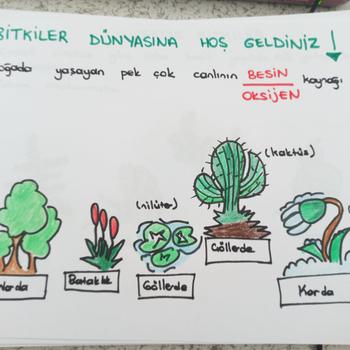 BİTKİLER DÜNYASINA HOŞ GELDİNİZ !
oğada yaşayan pek çok canlının BESİN kaynağı
OKSİJEN
(kaktüs)
(nilüfer)
Bataklık
Göllerde
Çöllerde
Karda